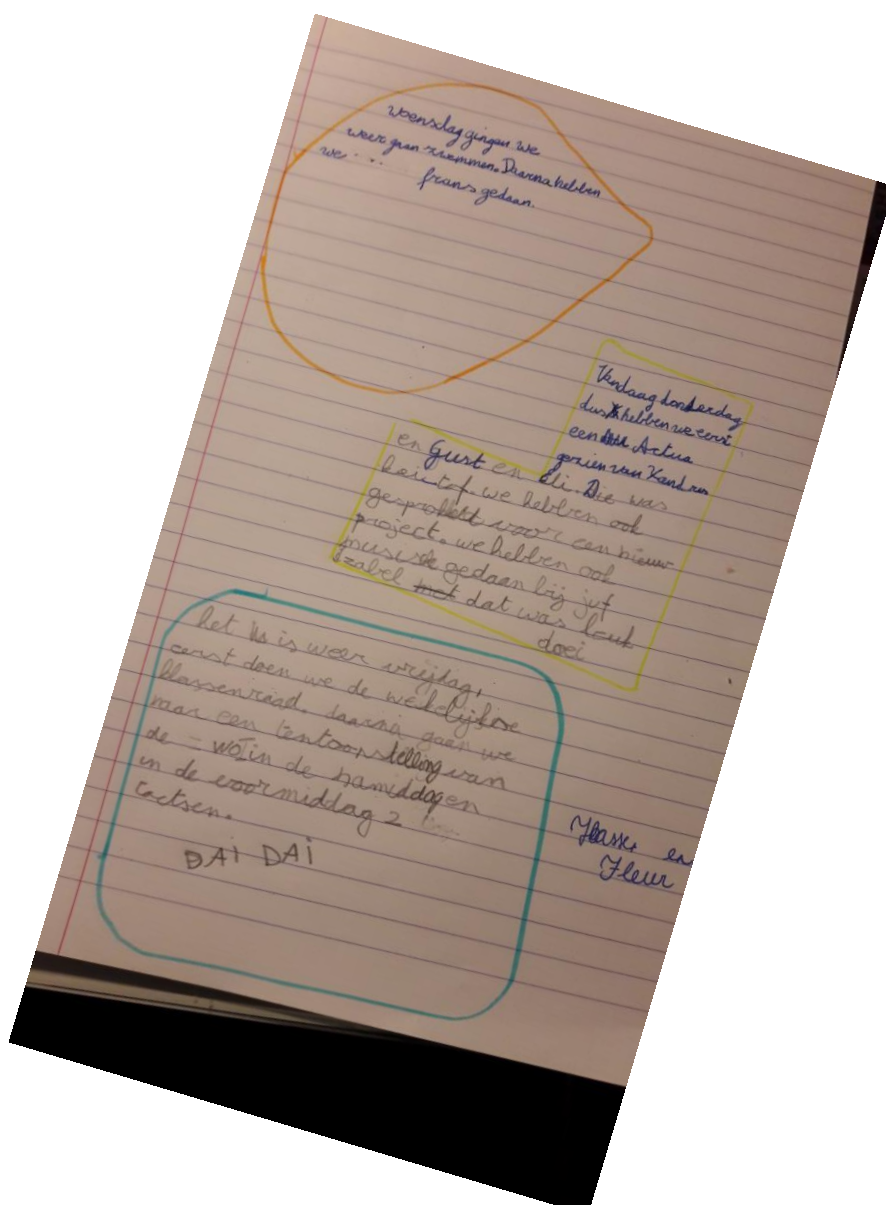 woensdag gingen we
weer gaan zwemmen. Daarna hebben
we ...
frans gedaan.
Vandaag donderdag
dus hebben we eerst
een Actua
gezien van Xandres
en Gust en Eli. Die was
kei tof. we hebben ook
gesprokt voor een nieuw
project. we hebben ook
musiek gedaan bij juf
Izabel met dat was leuk
doei
het is weer vrijdag,
eerst doen we de wekelijkse
klassenraad. daarna gaan we
naar een tentoonstelling van
de = wo1 in de namiddag en
in de voormiddag 2
toetsen.
DAi DAi
en
Fleur